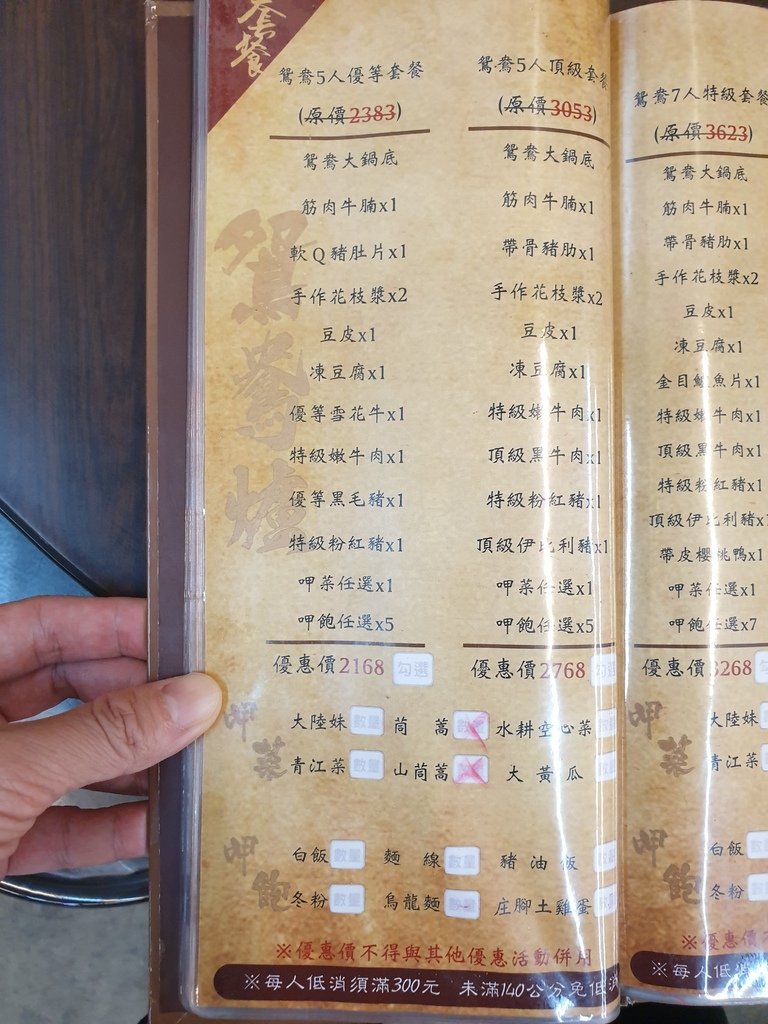 套餐
鴛鴦5人優等套餐
(原價2383)
鴛鴦大鍋底
筋肉牛腩x1
軟Q豬肚片x1
手作花枝漿x2
豆皮x1
凍豆腐x1
優等雪花牛x1
特級嫩牛肉x1
優等黑毛豬x1
特級粉紅豬x1
呷菜任選x1
呷飽任選x5
優惠價2168 勾選
鴛鴦5人頂級套餐
(原價3053)
鴛鴦大鍋底
筋肉牛腩x1
帶骨豬肋x1
手作花枝漿x2
豆皮x1
凍豆腐x1
特級嫩牛肉x1
頂級黑牛肉x1
特級粉紅豬x1
頂級伊比利豬x1
呷菜任選x1
呷飽任選x5
優惠價2768 勾選
鴛鴦爐
呷菜
大陸妹 數量 茼蒿 數量 水耕空心菜
青江菜 數量 山茼蒿 大黃瓜
呷飽
白飯 數量 麵線 數量 豬油飯
冬粉 數量 烏龍麵 數量 庄腳土雞蛋
※優惠價不得與其他優惠活動併用
※每人低消須滿300元 未滿140公分免低消
鴛鴦7人特級套餐
(原價3623)
鴛鴦大鍋底
筋肉牛腩x1
帶骨豬肋x1
手作花枝漿x2
豆皮x1
凍豆腐x1
金目鱸魚片x1
特級嫩牛肉x1
頂級黑牛肉x1
特級粉紅豬x1
頂級伊比利豬x1
帶皮櫻桃鴨x1
呷菜任選x1
呷飽任選x7
優惠價3268
呷菜
大陸妹
青江菜
呷飽
白飯
冬粉
※優惠價不
※每人低消